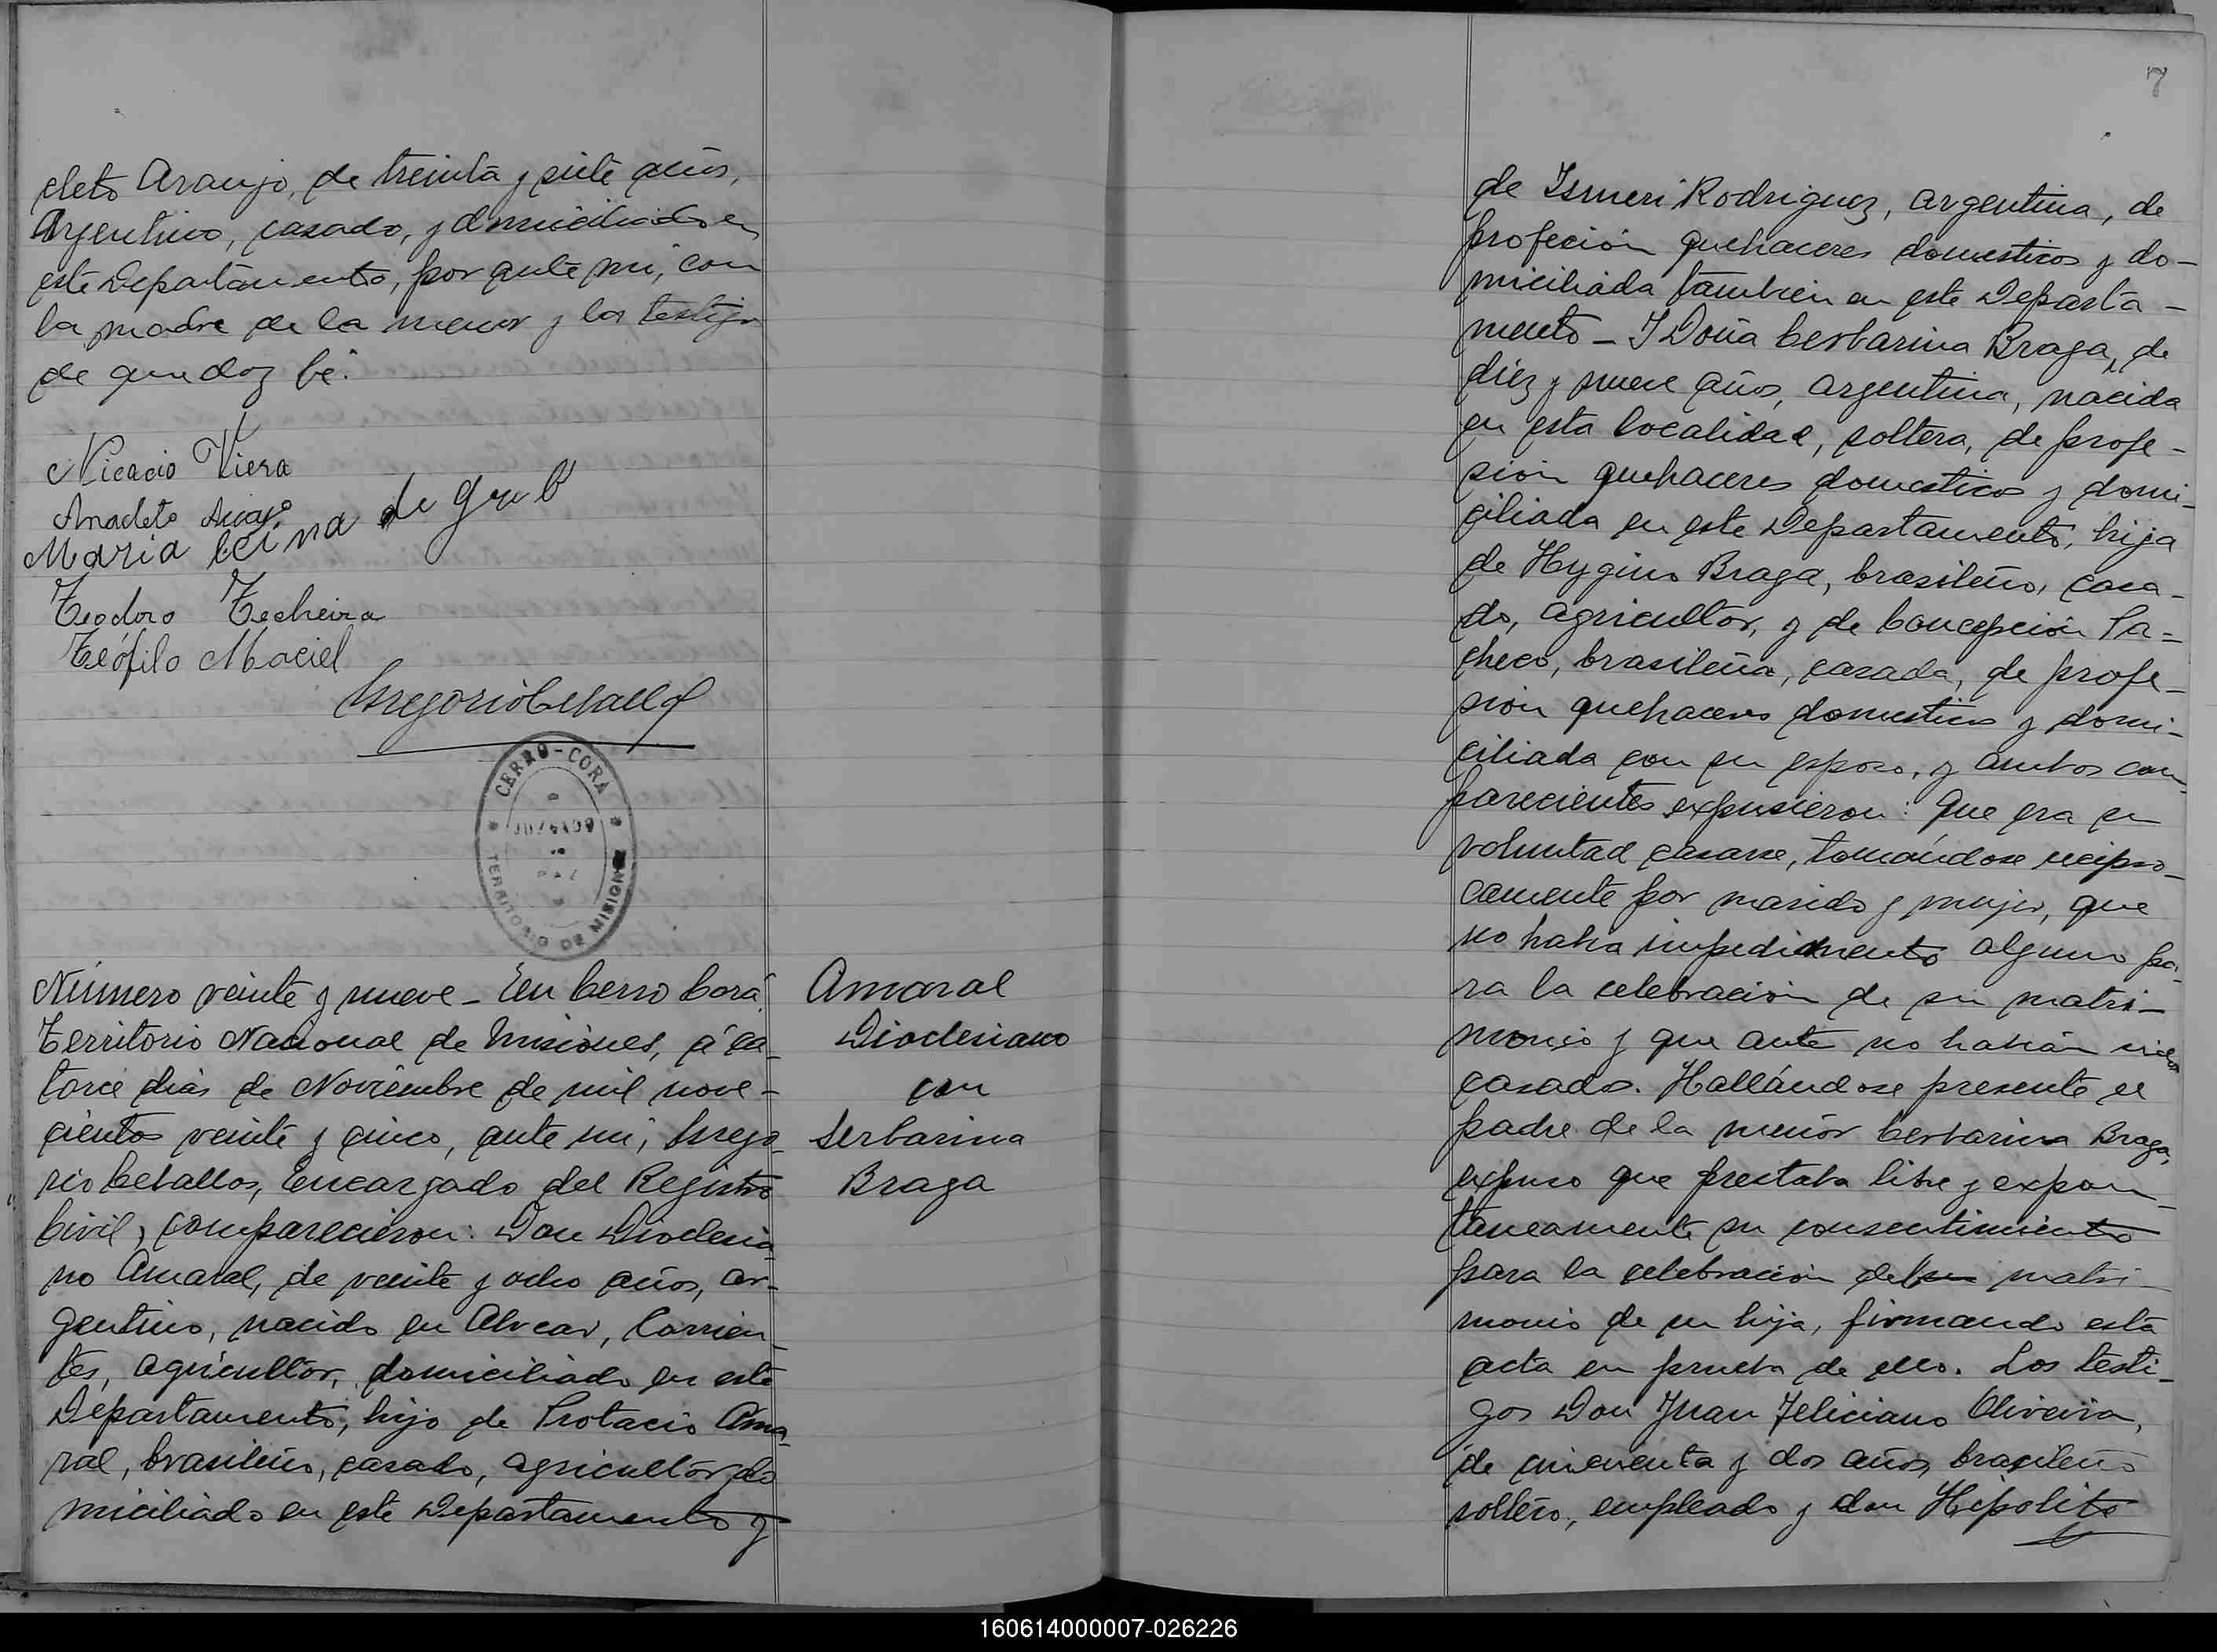 cleto Araujo, de treinta y siete años,
Argentino, casado, y domiciliado en
este Departamento, por ante mi, con
la madre de la menor y los testigos
de que doy fé.
Nicacio Viera
Anacleto Araujo
Maria de
Teodoro Techeira
Teófilo Maciel
Gregorio Ceballos
CERRO-CORÁ
JUZGADO
DE
PAZ
TERRITORIO DE MISIONES
Número veinte y nueve - En Cerro Corá
Territorio Nacional de Misiones, á ca-
torce dias de Noviembre de mil nove-
cientos veinte y cinco, ante mi, Grego-
rio Ceballos, Encargado del Registro
Civil, comparecieron: Don Dioclesia-
no Amaral, de veinte y ocho años, ar-
gentino, nacido en Alvear, Corrien-
tes, agricultor, domiciliado en este
Departamento, hijo de Protacio Ama-
ral, brasileño, casado, agricultor, do
miciliado en este Departamento y
Amaral
Dioclesiano
con
Serbarina
Braga
7
de Ismeri Rodriguez, argentina, de
profeción quehaceres domesticos y do-
miciliada tambien en este Departa-
mento - Y Doña Cerbarina Braga, de
diez y nueve años, argentina, nacida
en esta localidad, soltera, de profe-
sión quehaceres domesticos y domi-
ciliada en este Departamento, hija
de Hygino Braga, brasileño, casa-
do, agricultor, y de Concepción Pa-
checo, brasileña, casada, de profe-
sion quehaceres domesticos y domi-
ciliada con su esposo, y ambos com-
parecientes expusieron: Que era su
voluntad casarse, tomándose recipro-
camente por marido y mujer, que
no habia impedimento alguno pa-
ra la celebración de su matri-
monio y que ante no habian sido
casados. Hallándose presente el
padre de la menor Cerbarina Braga,
expuso que prestaba libre y expon-
taneamente su consentimiento
para la celebración del matri-
monio de su hija, firmando esta
acta en prueba de ello. Los testi-
gos Don Juan Feliciano Oliveira,
de cincuenta y dos años, brasileño
soltero, empleado y don Hipolito
160614000007-026226